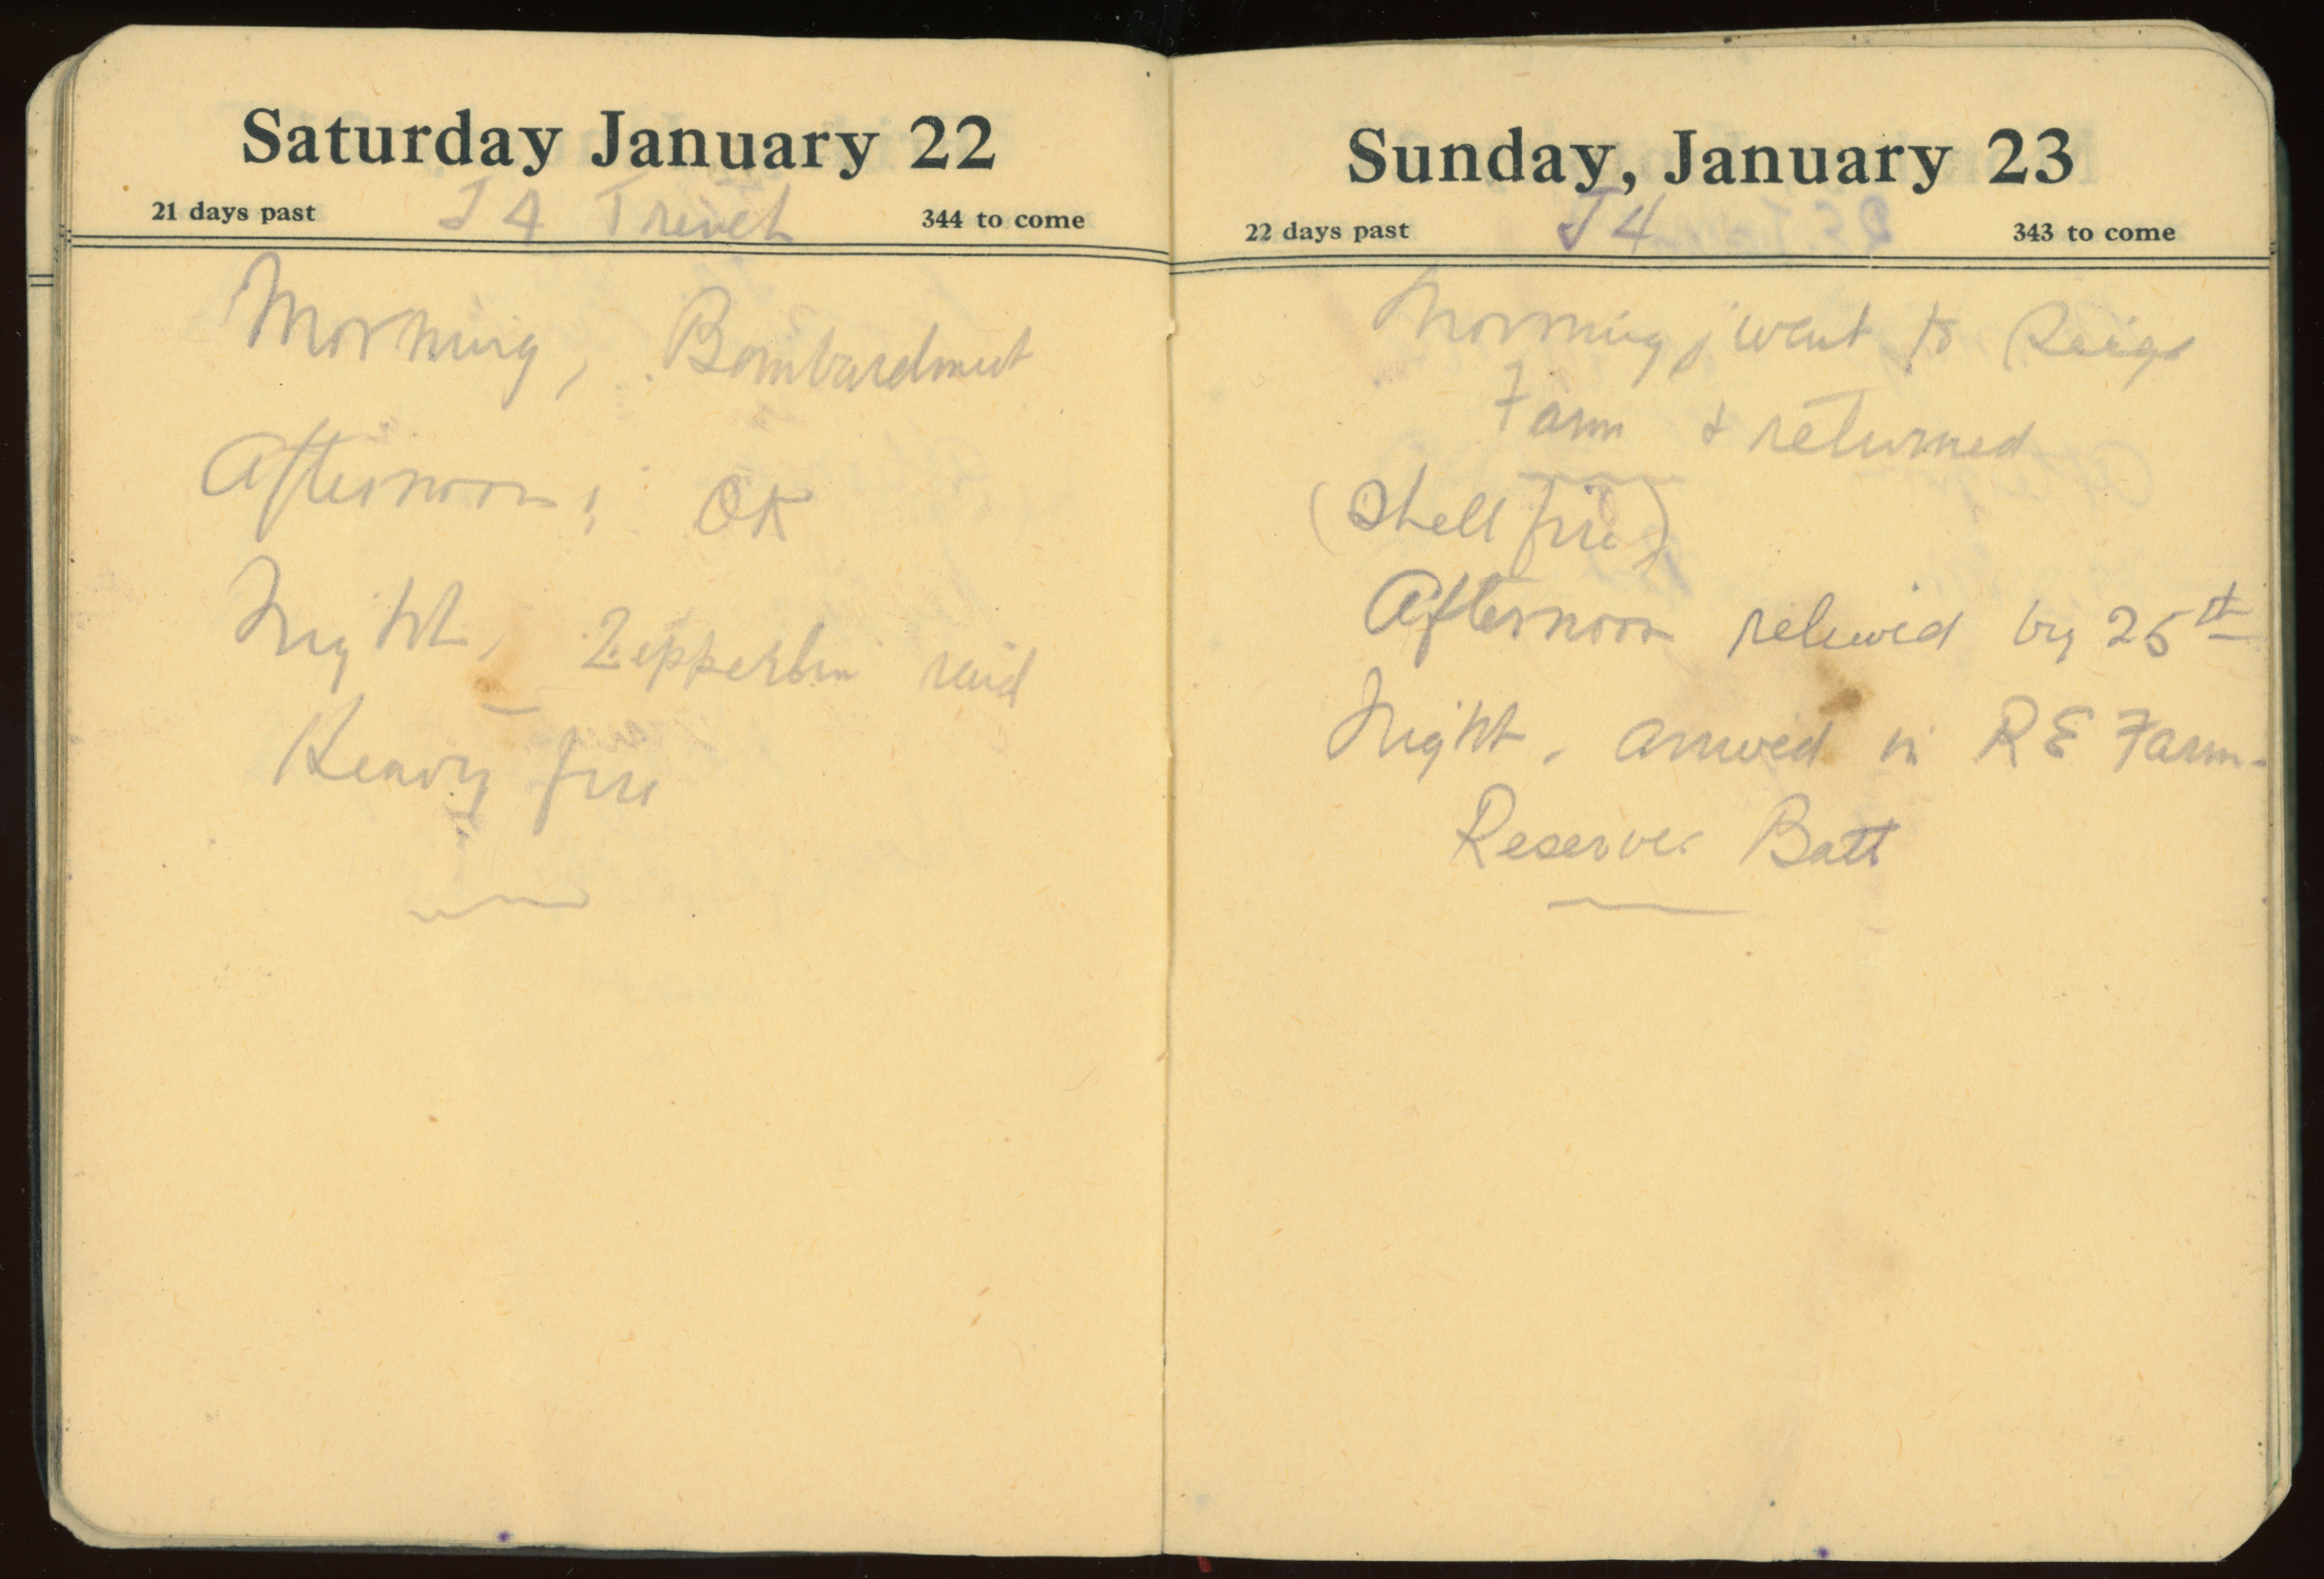 Saturday January 22
21 days past J4 Trench 344 to come
Morning, Bombardment
Afternoon; OK
Night, Zepperlin raid
Heavy fire
Sunday, January 23
22 days past J4 343 to come
Morning, went to
Farm & returned
(Shell fire)
Afternoon relieved by 25th
Night, arrived in RE Farm.
Reserve Batt